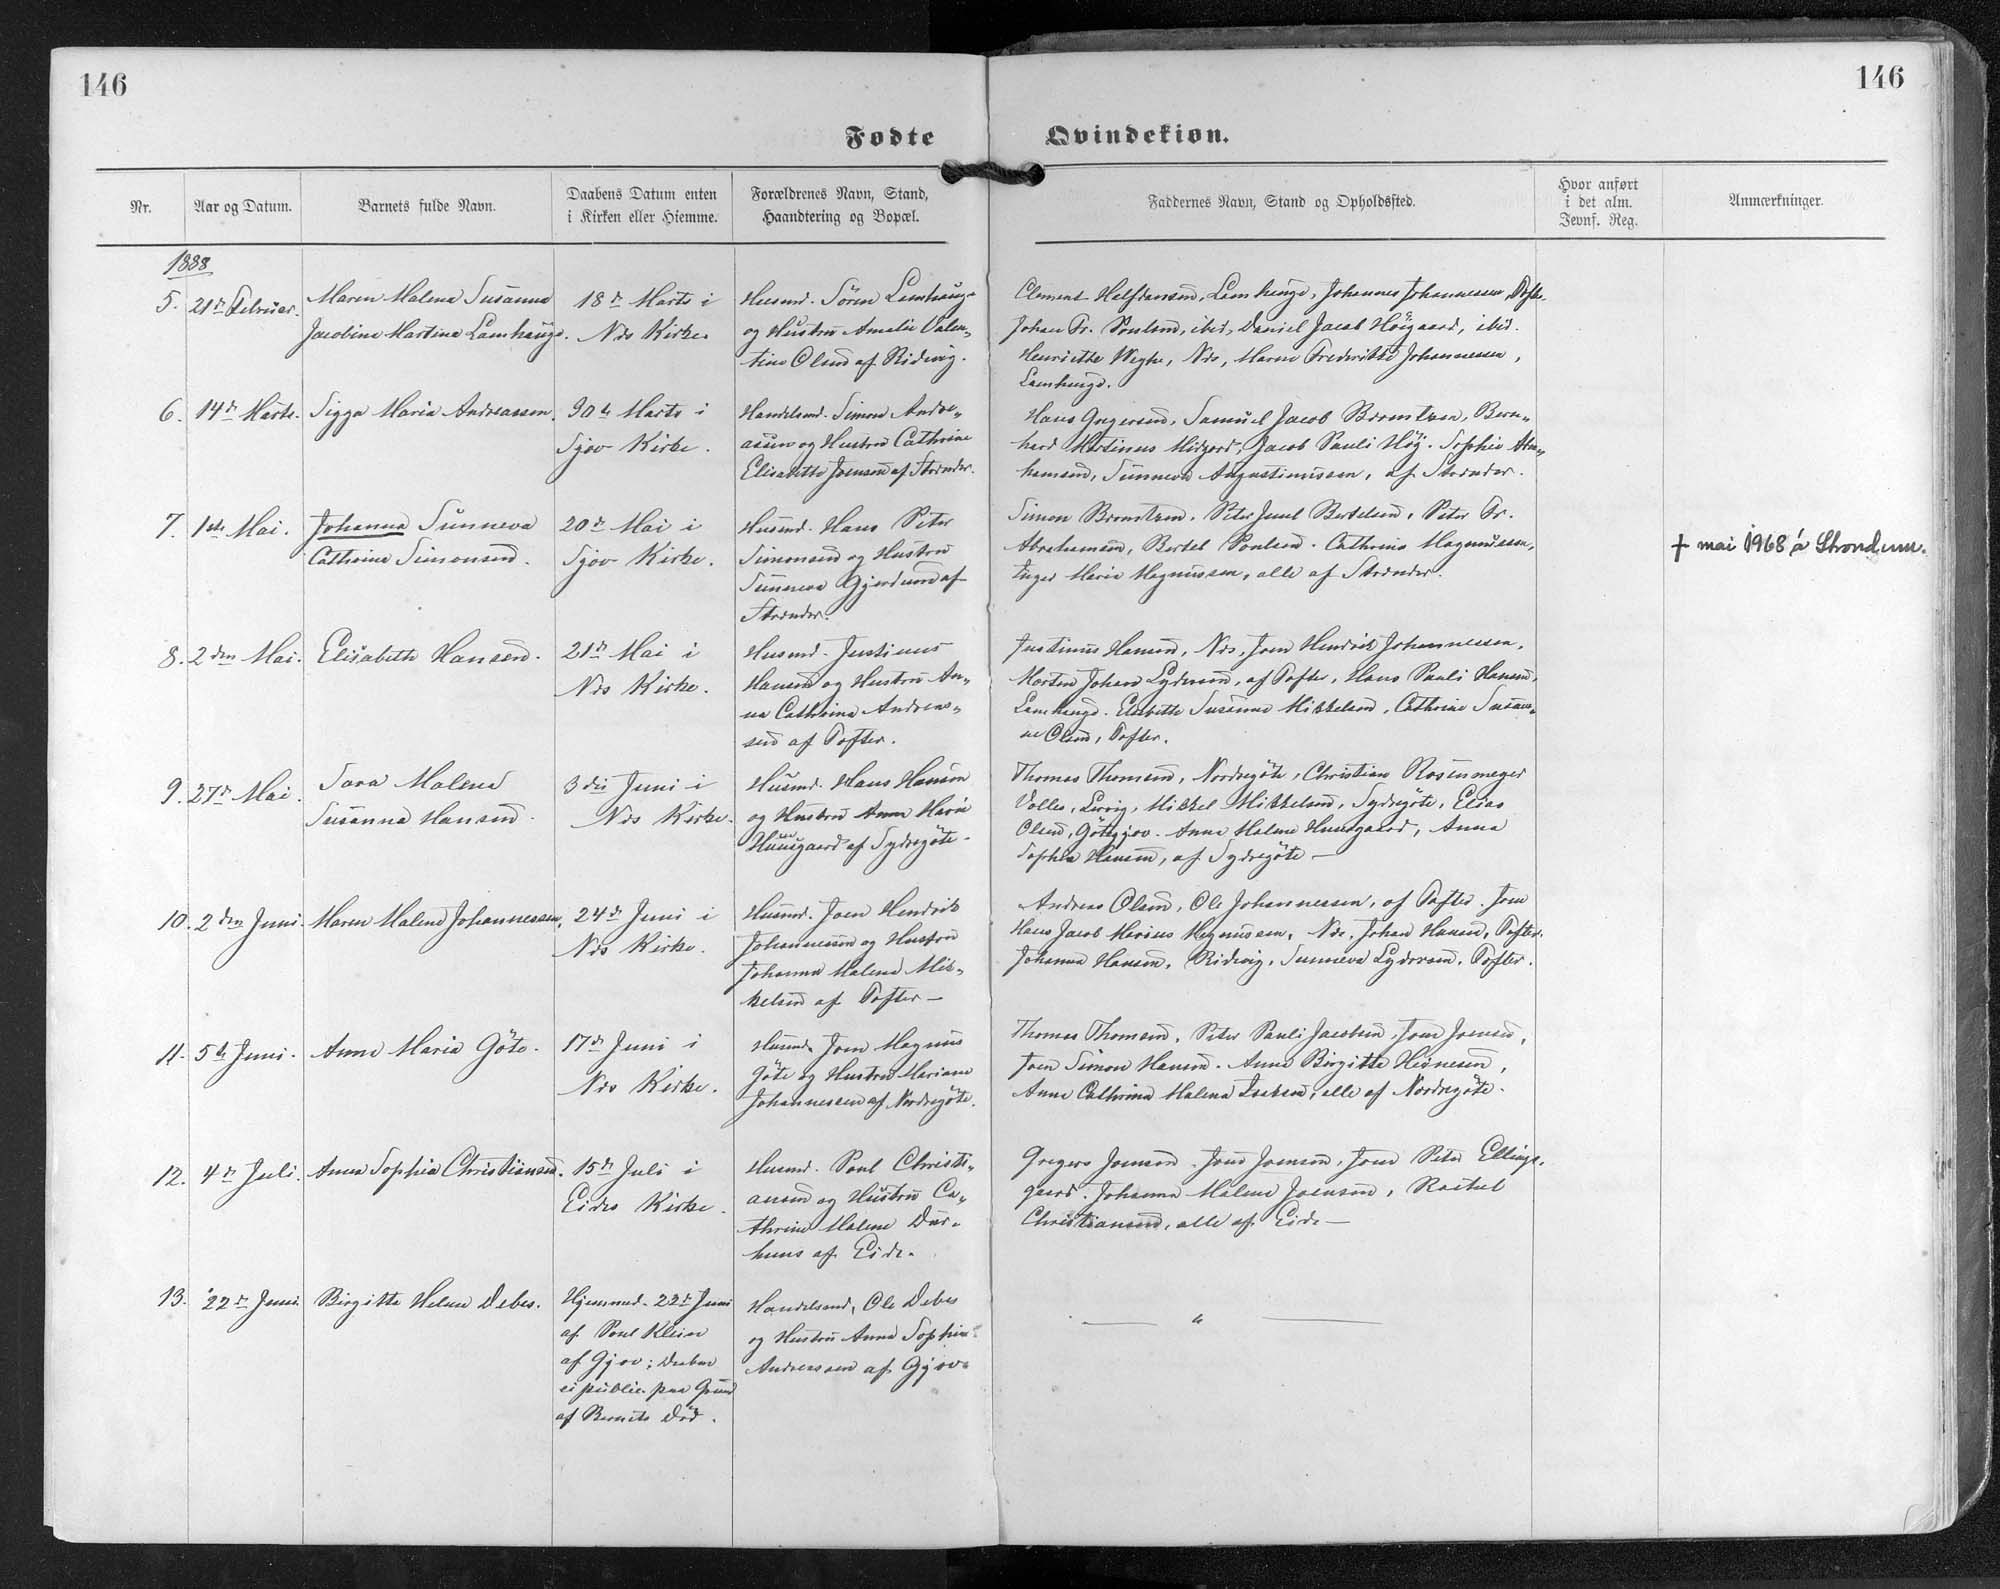 146
146
Fødte
Qvindekiøn.
Nr.
Aar og Datum.
Barnets fulde Navn.
Daabens Datum enten
i Kirken eller Hiemme.
Forældrenes Navn, Stand,
Haandtering og Bopæl.
Faddernes Navn, Stand og Opholdssted.
Hvor anført
i det alm.
Jevnf. Reg.
Anmærkninger.
1888
5. 21de Februar.
Maren Malena Susanna
Jacobine Martina Lamhauge.
18de Marts i
Næs Kirke
Husmd. Sören Lamhauge
og Hustru Amalie Valen-
tine Olsen af Ridevig.
Clement Halfdansen, Lamhauge, Johannes Johannessen, Tofte.
Johan Fr. Poulsen, ibid, Daniel Jacob Höigaard, ibid.
Henriette Weyhe, Næs, Maren Frederikke Johannessen,
Lamhauge.
6. 14de Marts.
Sigga Maria Andreassen.
30te Marts i
Sjov Kirke.
Handelsmd. Simon Andre-
asen og Hustru Cathrine
Elisabeth Joensen af Strænder.
Hans Gregersen, Samuel Jacob Bromstrøn, Bern-
hard Martinus Midjord, Jacob Pauli Höj. Sophie Abra-
hamsen, Sunneva Augustinussen, af Strænder.
7. 1ste Mai.
Johanna Sunneva
Cathrina Simonsen.
20de Mai i
Sjov Kirke.
Husmd. Hans Peter
Simonsen og Hustru
Sunneva Gjerdum af
Strænder.
Simon Bromstrøn. Peter Juul Bertelsen, Peter Fr.
Abrahamsen, Bertel Poulsen. Cathrine Magnussen,
Inger Marie Magnussen, alle af Strænder.
† mai 1968 á Strondum.
8. 2den Mai.
Elisabeth Hansen.
21de Mai i
Næs Kirke.
Husmd. Justinus
Hansen og Hustru An-
na Cathrina Andreas-
sen af Tofter.
Justinus Hansen, Næs, Joen Hendrik Johannessen,
Morten Johan Lydersen, af Tofter, Hans Pauli Hansen,
Lamhauge. Elsebeth Susanne Mikkelsen, Cathrine Susan-
ne Olsen, Tofter.
9. 27de Mai.
Sara Malene
Susanna Hansen.
3die Juni i
Næs Kirke.
Husmd. Hans Hansen
og Hustru Anna Maria
Huusgaard af Sydregöte
Thomas Thomsen, Nordregöte, Christian Rosenmeyer
Volles, Lervig, Mikkel Mikkelsen, Sydregöte, Elias
Olsen, Götegjov. Anna Malene Huusgaard, Anna
Sophia Hansen, af Sydregöte —
10. 2den Juni.
Maren Malene Johannessen,
24de Juni i
Næs Kirke.
Husmd. Joen Hendrik
Johannessen og Hustru
Johanna Malene Mik-
kelsen af Tofter —
Andreas Olsen, Ole Johannessen, af Tofter. Joen
Hans Jacob Marius Magnussen, Næs. Johan Hansen, Tofter.
Johanna Hansen, Ridevig, Sunneva Lydersen. Tofter.
11. 5te Juni.
Anne Maria Göte.
17de Juni i
Næs Kirke.
Husmd. Joen Magnus
Göte og Hustru Mariane
Johannessen af Nordregöte.
Thomas Thomsen, Peter Pauli Jacobsen, Joen Joensen,
Joen Simon Hansen. Anna Birgitta Heinesen,
Anne Cathrina Malena Isaksen, alle af Nordregöte.
12. 4de Juli.
Anna Sophia Christiansen.
15de Juli i
Eides Kirke.
Husmd. Poul Christi-
ansen og Hustru Ca-
thrine Malene Dur-
huus af Eide.
Gregers Joensen. Joen Joensen, Joen Peter Ellings-
gaard. Johanna Malene Joensen, Rachel
Christiansen, alle af Eide —
13. 22de Juni.
Birgitta Helene Debes.
Hjemmed. 22de Juni
af Poul Klein
af Gjov; Daaben
ei public. paa Grund
af Barnets Död.
Handelsmd. Ole Debes
og Hustru Anna Sophie
Andreassen af Gjov.
— " —